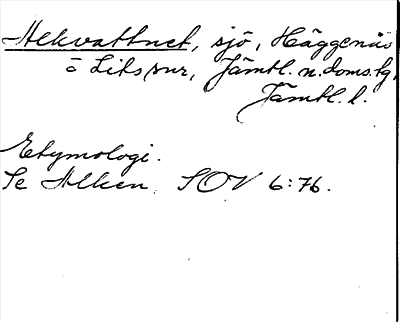 Alkvattnet, sjö, Häggenås
o Lits snr, Jämtl. n. doms. tg,
Jämtl. l.
Etymologi.
Se Alken. SOV 6:76.